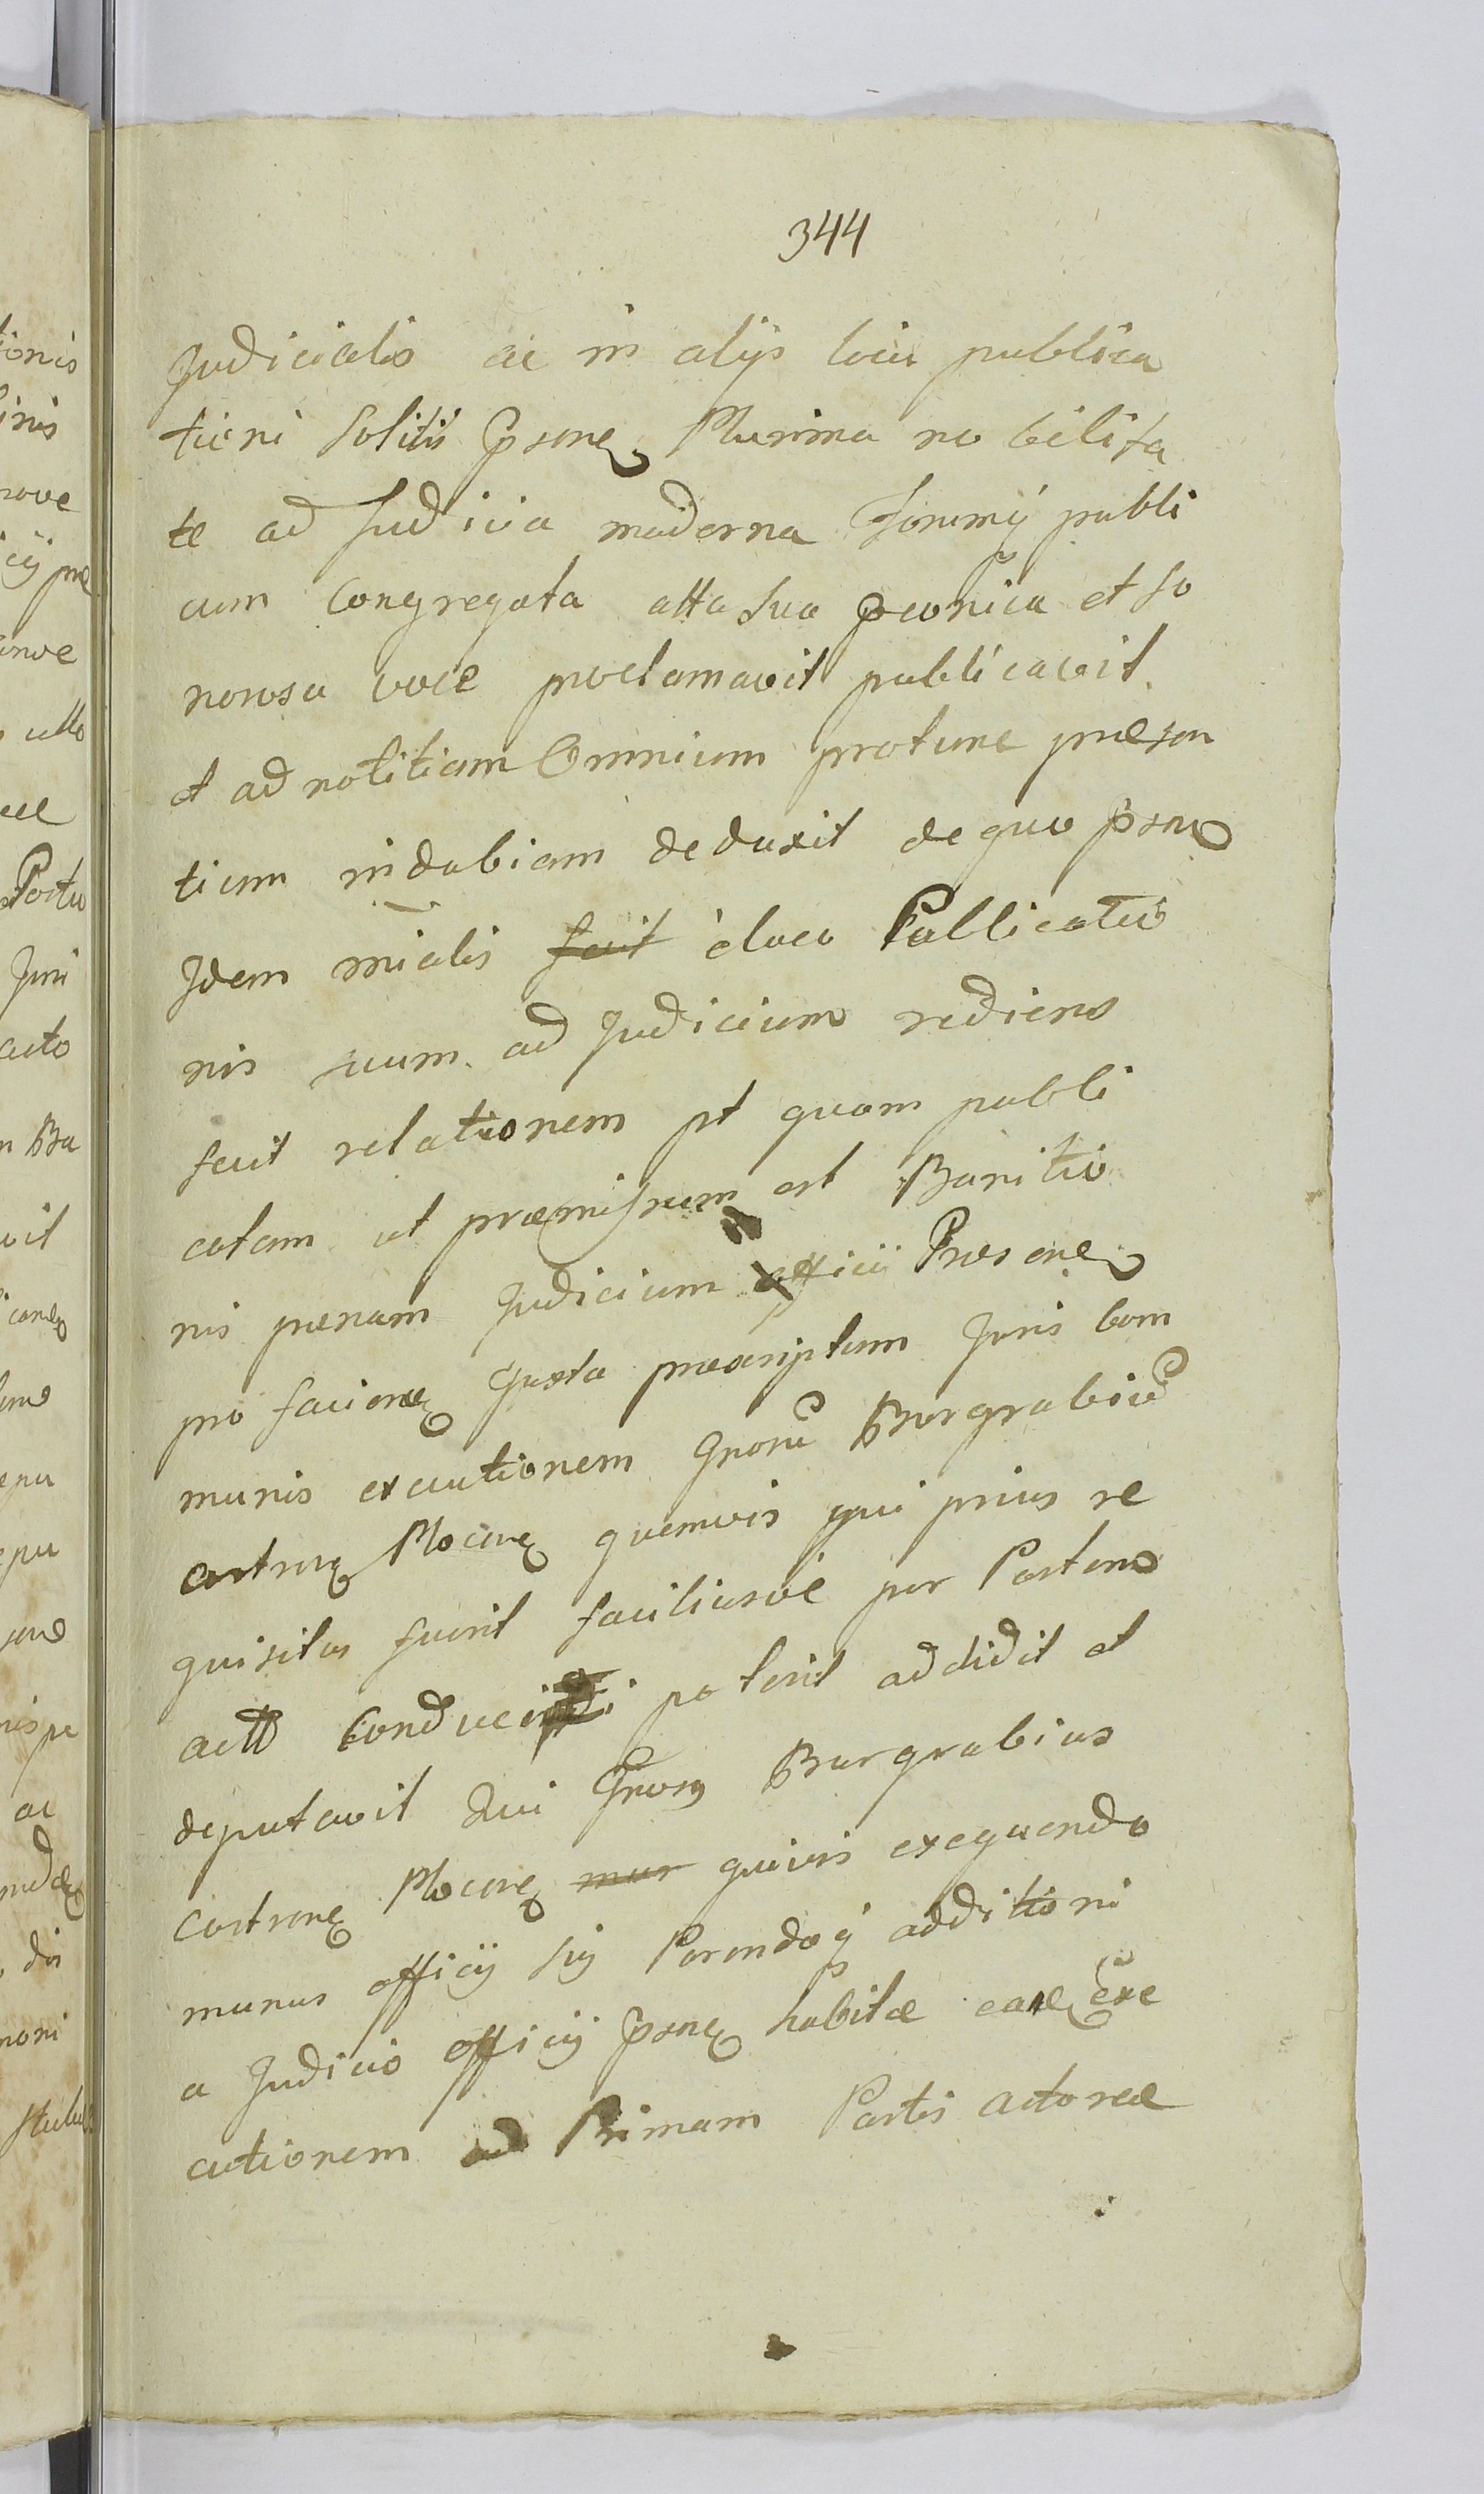 344
Judicialis ac in alijs locis publica
tioni solitis Psone Plurima nobilita
te ad Judicia moderna Forumq publi
cum Congregata alta sua preonica et so
norosa voce proclamavit publicavit
et ad notitiam Omnium protunc praesen
tium indubiam deduxit de quo psone
Idem mialis fecit eloco Publicatio
nis suum ad Judicium rediens
fecit relationem pt quam publi
catam ut praemissum est Banitio
nis paenam Judicium officii Praesone
pro facione Juxta praescriptum Juris Com
munis executionem Gnorū Burgrabiorū
castrene Plocene quemvis qui prius re
quisitus fuerit faciliusve per Partem
actō conduci poterit addidit et
deputavit Qui Gnosus Burgrabius
castrene Plocene mun quivis exequendo
munus officij sui Parendoq additioni
a Judicio officij psone habitae eane Exe
cutionem ad Primam Partis actoreae